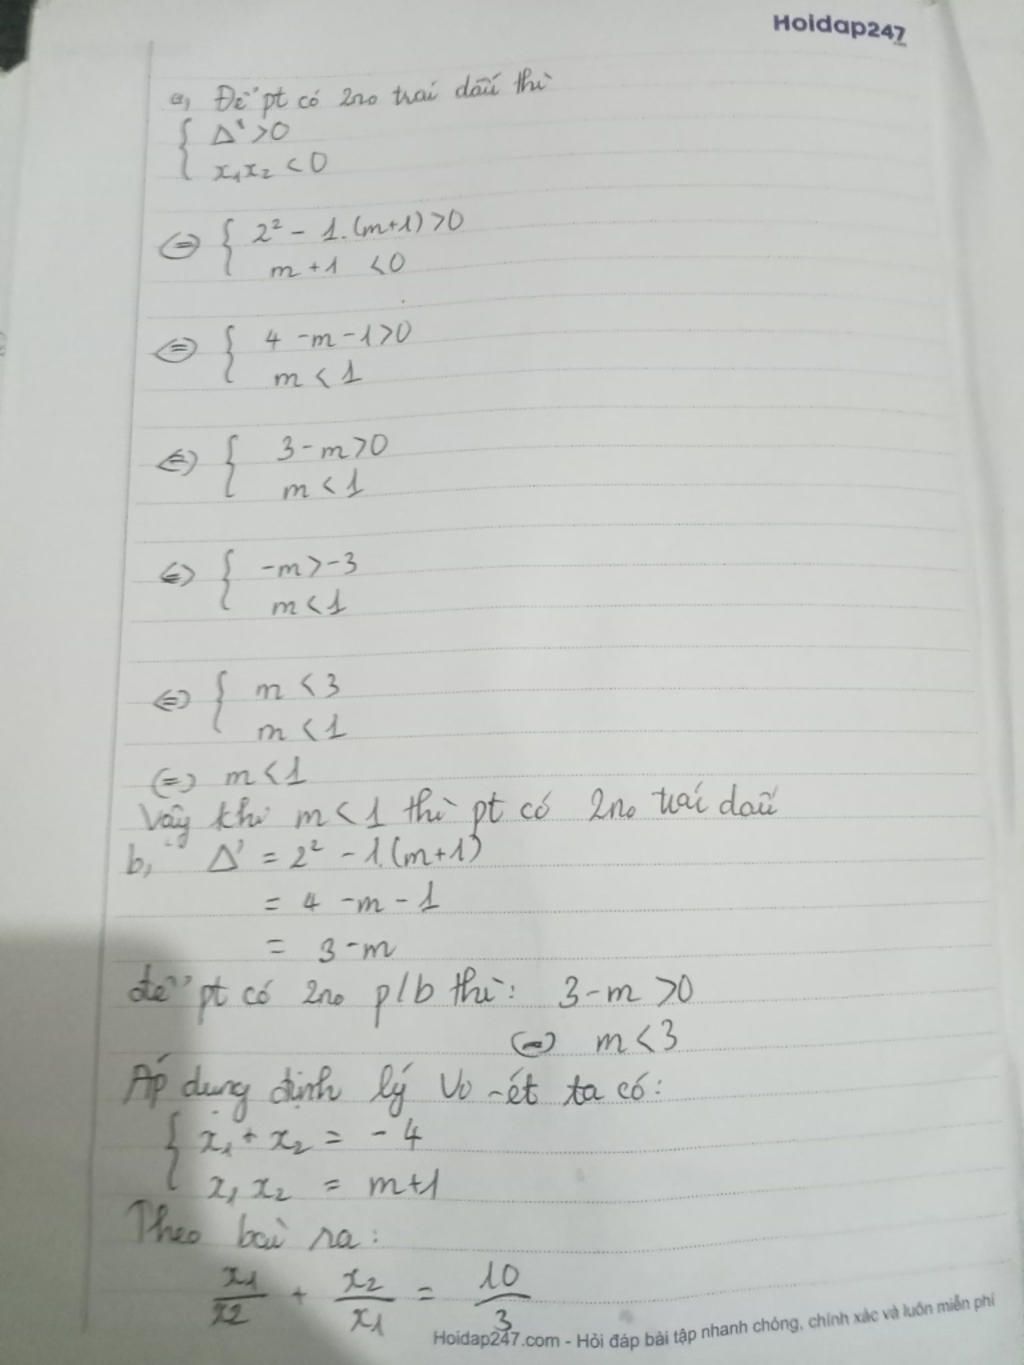 Hoidap247
.com
a, Để pt có 2no trái dấu thì
{ Δ' > 0
x₁x₂ < 0
⇔ { 2² - 1.(m+1) > 0
m + 1 < 0
⇔ { 4 - m - 1 > 0
m < 1
⇔ { 3 - m > 0
m < 1
⇔ { -m > -3
m < 1
⇔ { m < 3
m < 1
(=) m < 1
Vậy khi m < 1 thì pt có 2no trái dấu
b, Δ' = 2² - 1.(m+1)
= 4 - m - 1
= 3 - m
để pt có 2no p/b thì: 3 - m > 0
(=) m < 3
Áp dụng định lý Vi-ét ta có:
{ x₁ + x₂ = - 4
x₁ x₂ = m+1
Theo bài ra:
x₁/x2 + x₂/x₁ = 10/3
Hoidap247.com - Hỏi đáp bài tập nhanh chóng, chính xác và luôn miễn phí